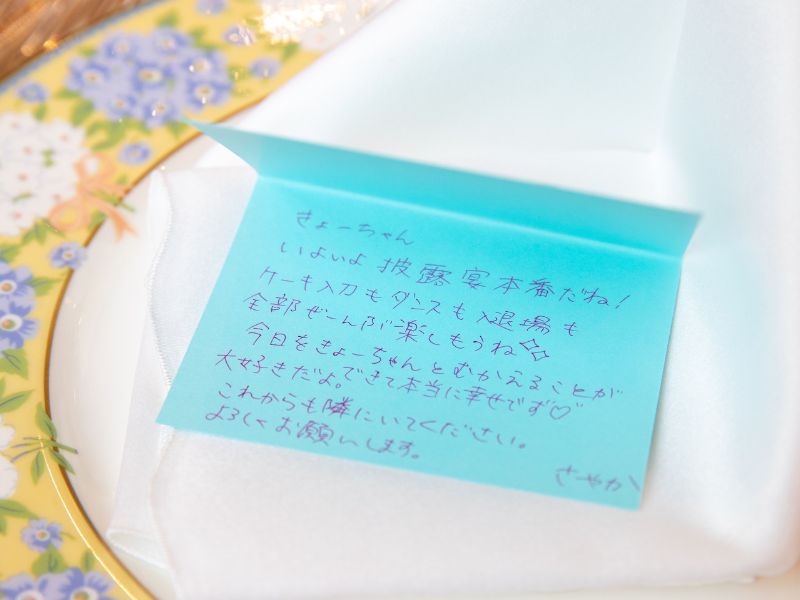 きょーちゃん
いよいよ披露宴本番だね!
ケーキ入刀もダンスも入退場も
全部ぜーんぶ楽しもうね
今日をきょーちゃんとむかえることが
できて本当に幸せです♡
大好きだよ。
これからも隣にいてください。
よろしくお願いします。
さやか